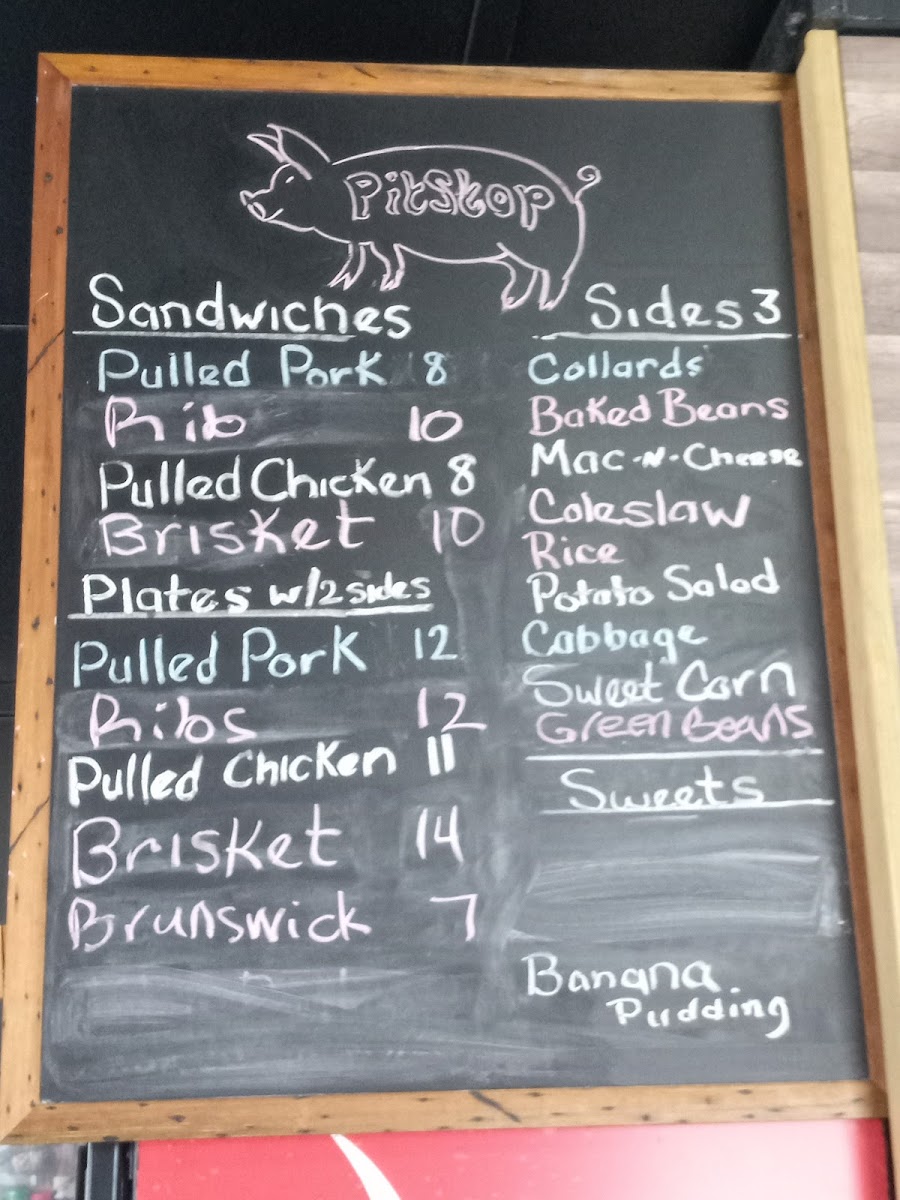 PitStop
Sandwiches
Pulled Pork 8
Rib 10
Pulled Chicken 8
Brisket 10
Plates w/2 sides
Pulled Pork 12
Ribs 12
Pulled Chicken 11
Brisket 14
Brunswick 7
Sides 3
Collards
Baked Beans
Mac-N-Cheese
Coleslaw
Rice
Potato Salad
Cabbage
Sweet Corn
Green Beans
Sweets
Banana
Pudding